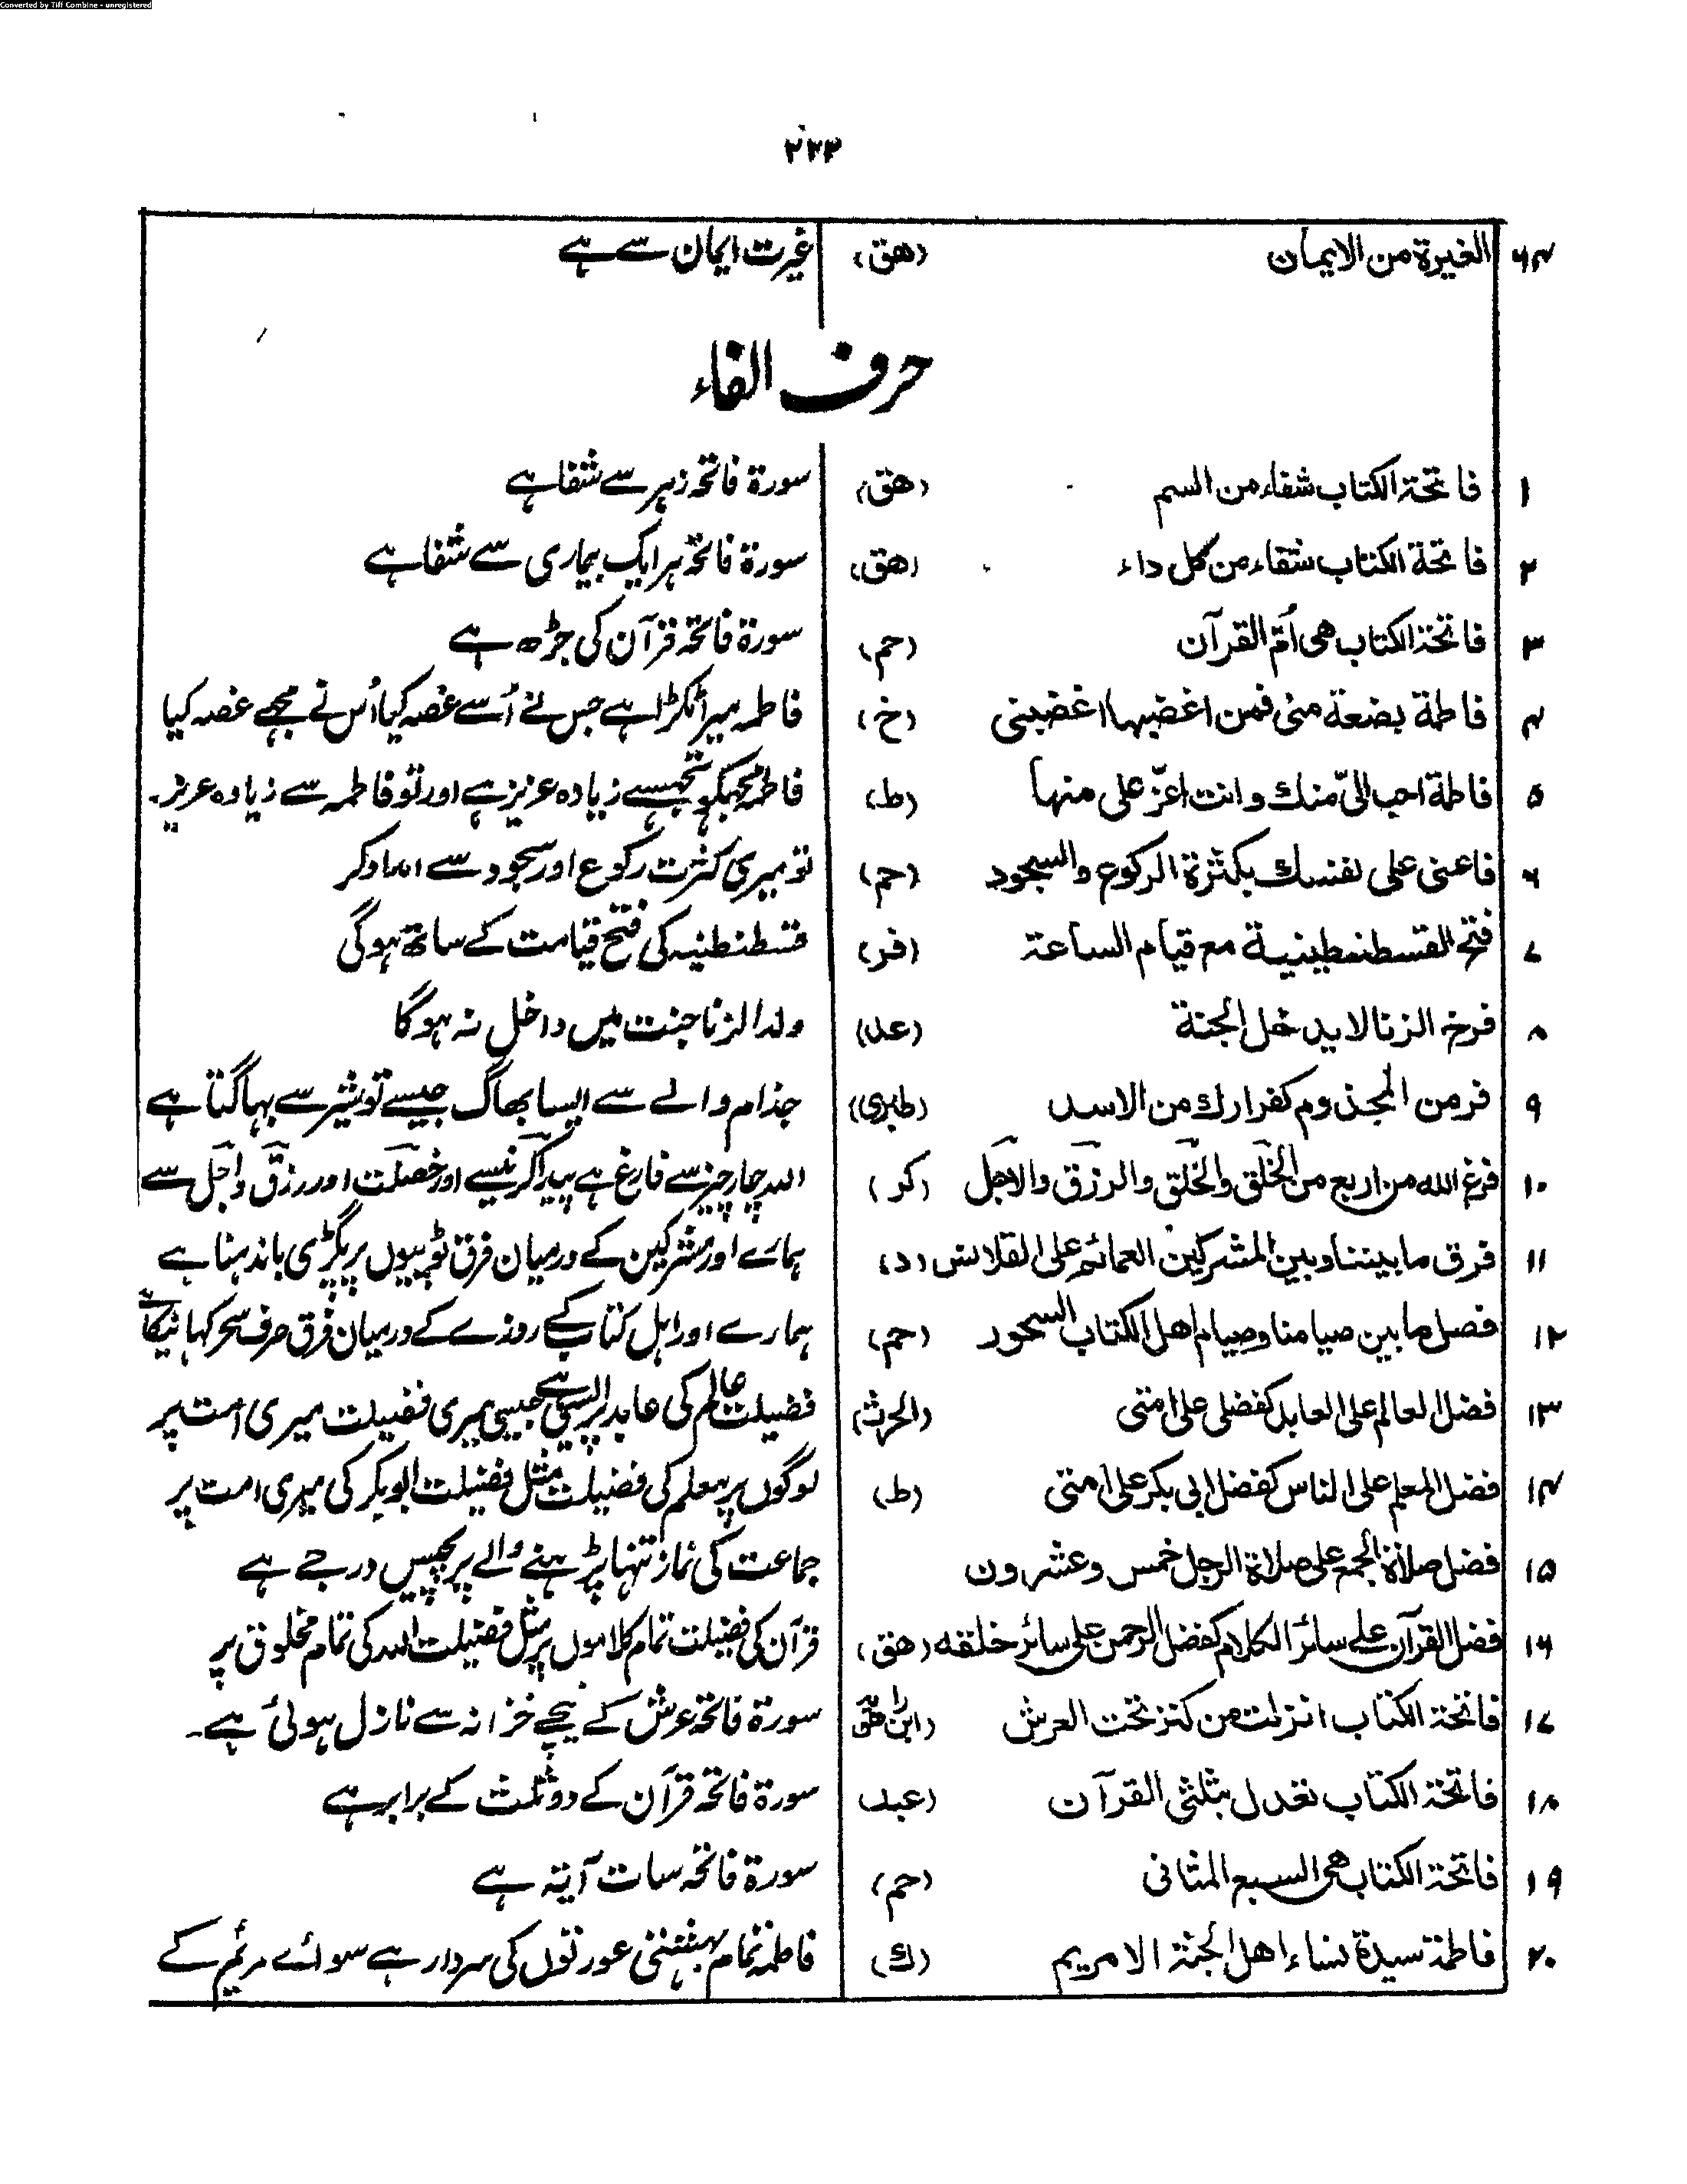 Converted by Tiff Combine - unregistered
۲۳۳
۶۴ الغیرة من الایمان (هق) غیرت ایمان سے ہے
حرف الفاء
۱ فاتحة الکتاب شفاء من السم (هق) سورة فاتحہ زہر سے شفا ہے
۲ فاتحة الکتاب شفاء من کل داء (هق) سورة فاتحہ ہر ایک بیماری سے شفا ہے
۳ فاتحة الکتاب هی اُمّ القرآن (حم) سورة فاتحہ قرآن کی جڑھ ہے
۴ فاطمة بضعة منی فمن اغضبها اغضبنی (خ) فاطمہ میرا ٹکڑا ہے جس نے اُسے غصہ کیا اُس نے مجھے غصہ کیا
۵ فاطمة احب الیّ منك وانت اعزّ علی منها (ط) فاطمہ مجہکو تجہسے زیادہ عزیز ہے اور تو فاطمہ سے زیادہ عزیز۔
۶ فاعنی علی نفسك بکثرة الرکوع والسجود (حم) تو میری کثرت رکوع اور سجود سے امداد کر
۷ فتح القسطنطینیة مع قیام الساعة (فر) قسطنطنیہ کی فتح قیامت کے ساتھ ہوگی
۸ فرخ الزنا لا یدخل الجنة (عد) ولد الزنا جنت میں داخل نہ ہوگا
۹ فر من المجذوم کفرارك من الاسد (طبری) جذام والے سے ایسا بھاگ جیسے تو شیر سے بہاگتا ہے
۱۰ فرغ الله من اربع من الخَلق والخُلق والرزق والاجل (کر) اللہ چار چیز سے فارغ ہے پیدا کرنیسے اور خصلت اور رزق و اجل سے
۱۱ فرق ما بیننا وبین المشرکین العمائم علی القلانس (د) ہمارے اور مشرکین کے درمیان فرق ٹوپیوں پر پگڑی باندہنا ہے
۱۲ فصل ما بین صیامنا وصیام اهل الکتاب السحور (حم) ہمارے اور اہل کتاب کے روزے کے درمیان فرق حرف سحر کہانیکا ہے
۱۳ فضل العالم علی العابد کفضلی علی امتی (الحرث) فضیلت عالم کی عابد پر ایسی ہے جیسی میری فضیلت میری امت پر
۱۴ فضل المعلم علی الناس کفضل ابی بکر علی امتی (ط) لوگوں پر معلم کی فضیلت مثل فضیلت ابوبکر کی میری امت پر
۱۵ فضل صلاة الجمع علی صلاة الرجل خمس وعشرون جماعت کی نماز تنہا پڑہنے والے پر پچیس درجے ہے
۱۶ فضل القرآن علی سائر الکلام کفضل الرحمن علی سائر خلقه (هق) قرآن کی فضیلت تمام کلاموں پر مثل فضیلت اللہ کی تمام مخلوق پر
۱۷ فاتحة الکتاب انزلت من کنز تحت العرش (ابن راهق) سورة فاتحہ عرش کے نیچے خزانہ سے نازل ہوئی ہے۔
۱۸ فاتحة الکتاب تعدل بثلثی القرآن (عبد) سورة فاتحہ قرآن کے دو ثلث کے برابر ہے
۱۹ فاتحة الکتاب هی السبع المثانی (حم) سورة فاتحہ سات آیتہ ہے
۲۰ فاطمة سیدة نساء اهل الجنة الا مریم (ك) فاطمہ تمام بہشتی عورتوں کی سردار ہے سوائے مریم کے